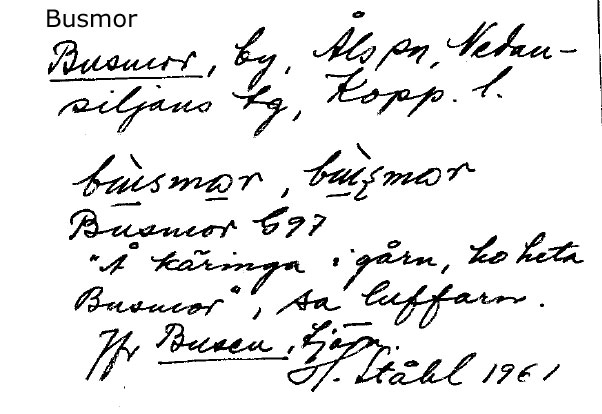 Busmor
Busmor, by, Åls sn, Nedan-
siljans tg, Kopp. l.
bùsmar, bùsmar
Busmor G97
"Å käringa i gårn, ho heta
Busmor", sa luffarn.
Jfr Busen, tjärn.
H. Ståhl 1961